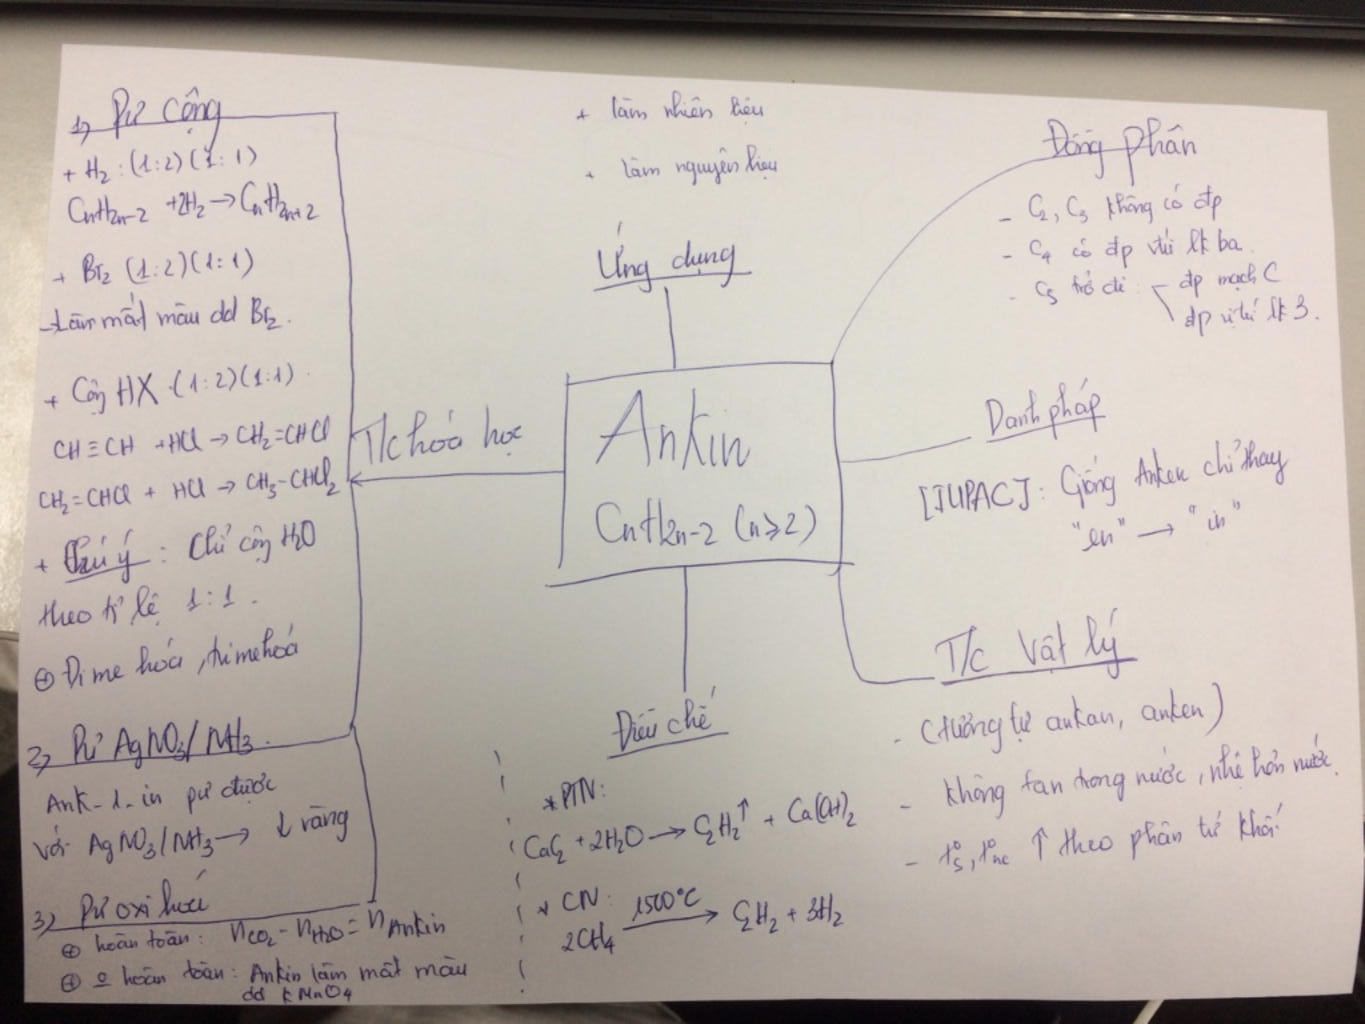 1) Pư cộng
+ H₂ : (1:2) (1:1)
CnH2n-2 +2H₂ → CnH2n+2
+ Br₂ (1:2) (1:1)
→ Làm mất màu dd Br₂.
+ Cộng HX (1:2) (1:1)
CH≡CH + HCl → CH₂=CHCl
CH₂=CHCl + HCl → CH₃-CHCl₂
+ Chú ý : Chỉ cộng H₂O
theo tỉ lệ 1:1.
⊕ Đime hóa, trimehoá
2) Pư AgNO₃/NH₃.
Ank-1-in pư được
với AgNO₃/NH₃ → ↓ vàng
3) Pư oxi hoá
⊕ hoàn toàn: nCO₂ - nH₂O = nAnkin
⊕ o hoàn toàn: Ankin làm mất màu
dd KMnO₄
T/c hóa học
+ làm nhiên liệu
+ làm nguyên liệu
Ứng dụng
Ankin
CnH2n-2 (n≥2)
Điều chế
* PTN:
CaC₂ + 2H₂O → C₂H₂↑ + Ca(OH)₂
* CN:
2CH₄ 1500°C → C₂H₂ + 3H₂
Đồng phân
- C₂, C₃ không có đp
- C₄ có đp vtrí lk ba.
- C₅ trở đi: đp mạch C
đp vị trí lk 3.
Danh pháp
[IUPAC]: Giống Anken chỉ thay
"en" → "in"
T/c vật lý
- (tương tự ankan, anken)
- không tan trong nước, nhẹ hơn nước.
- t°s, t°nc ↑ theo phân tử khối